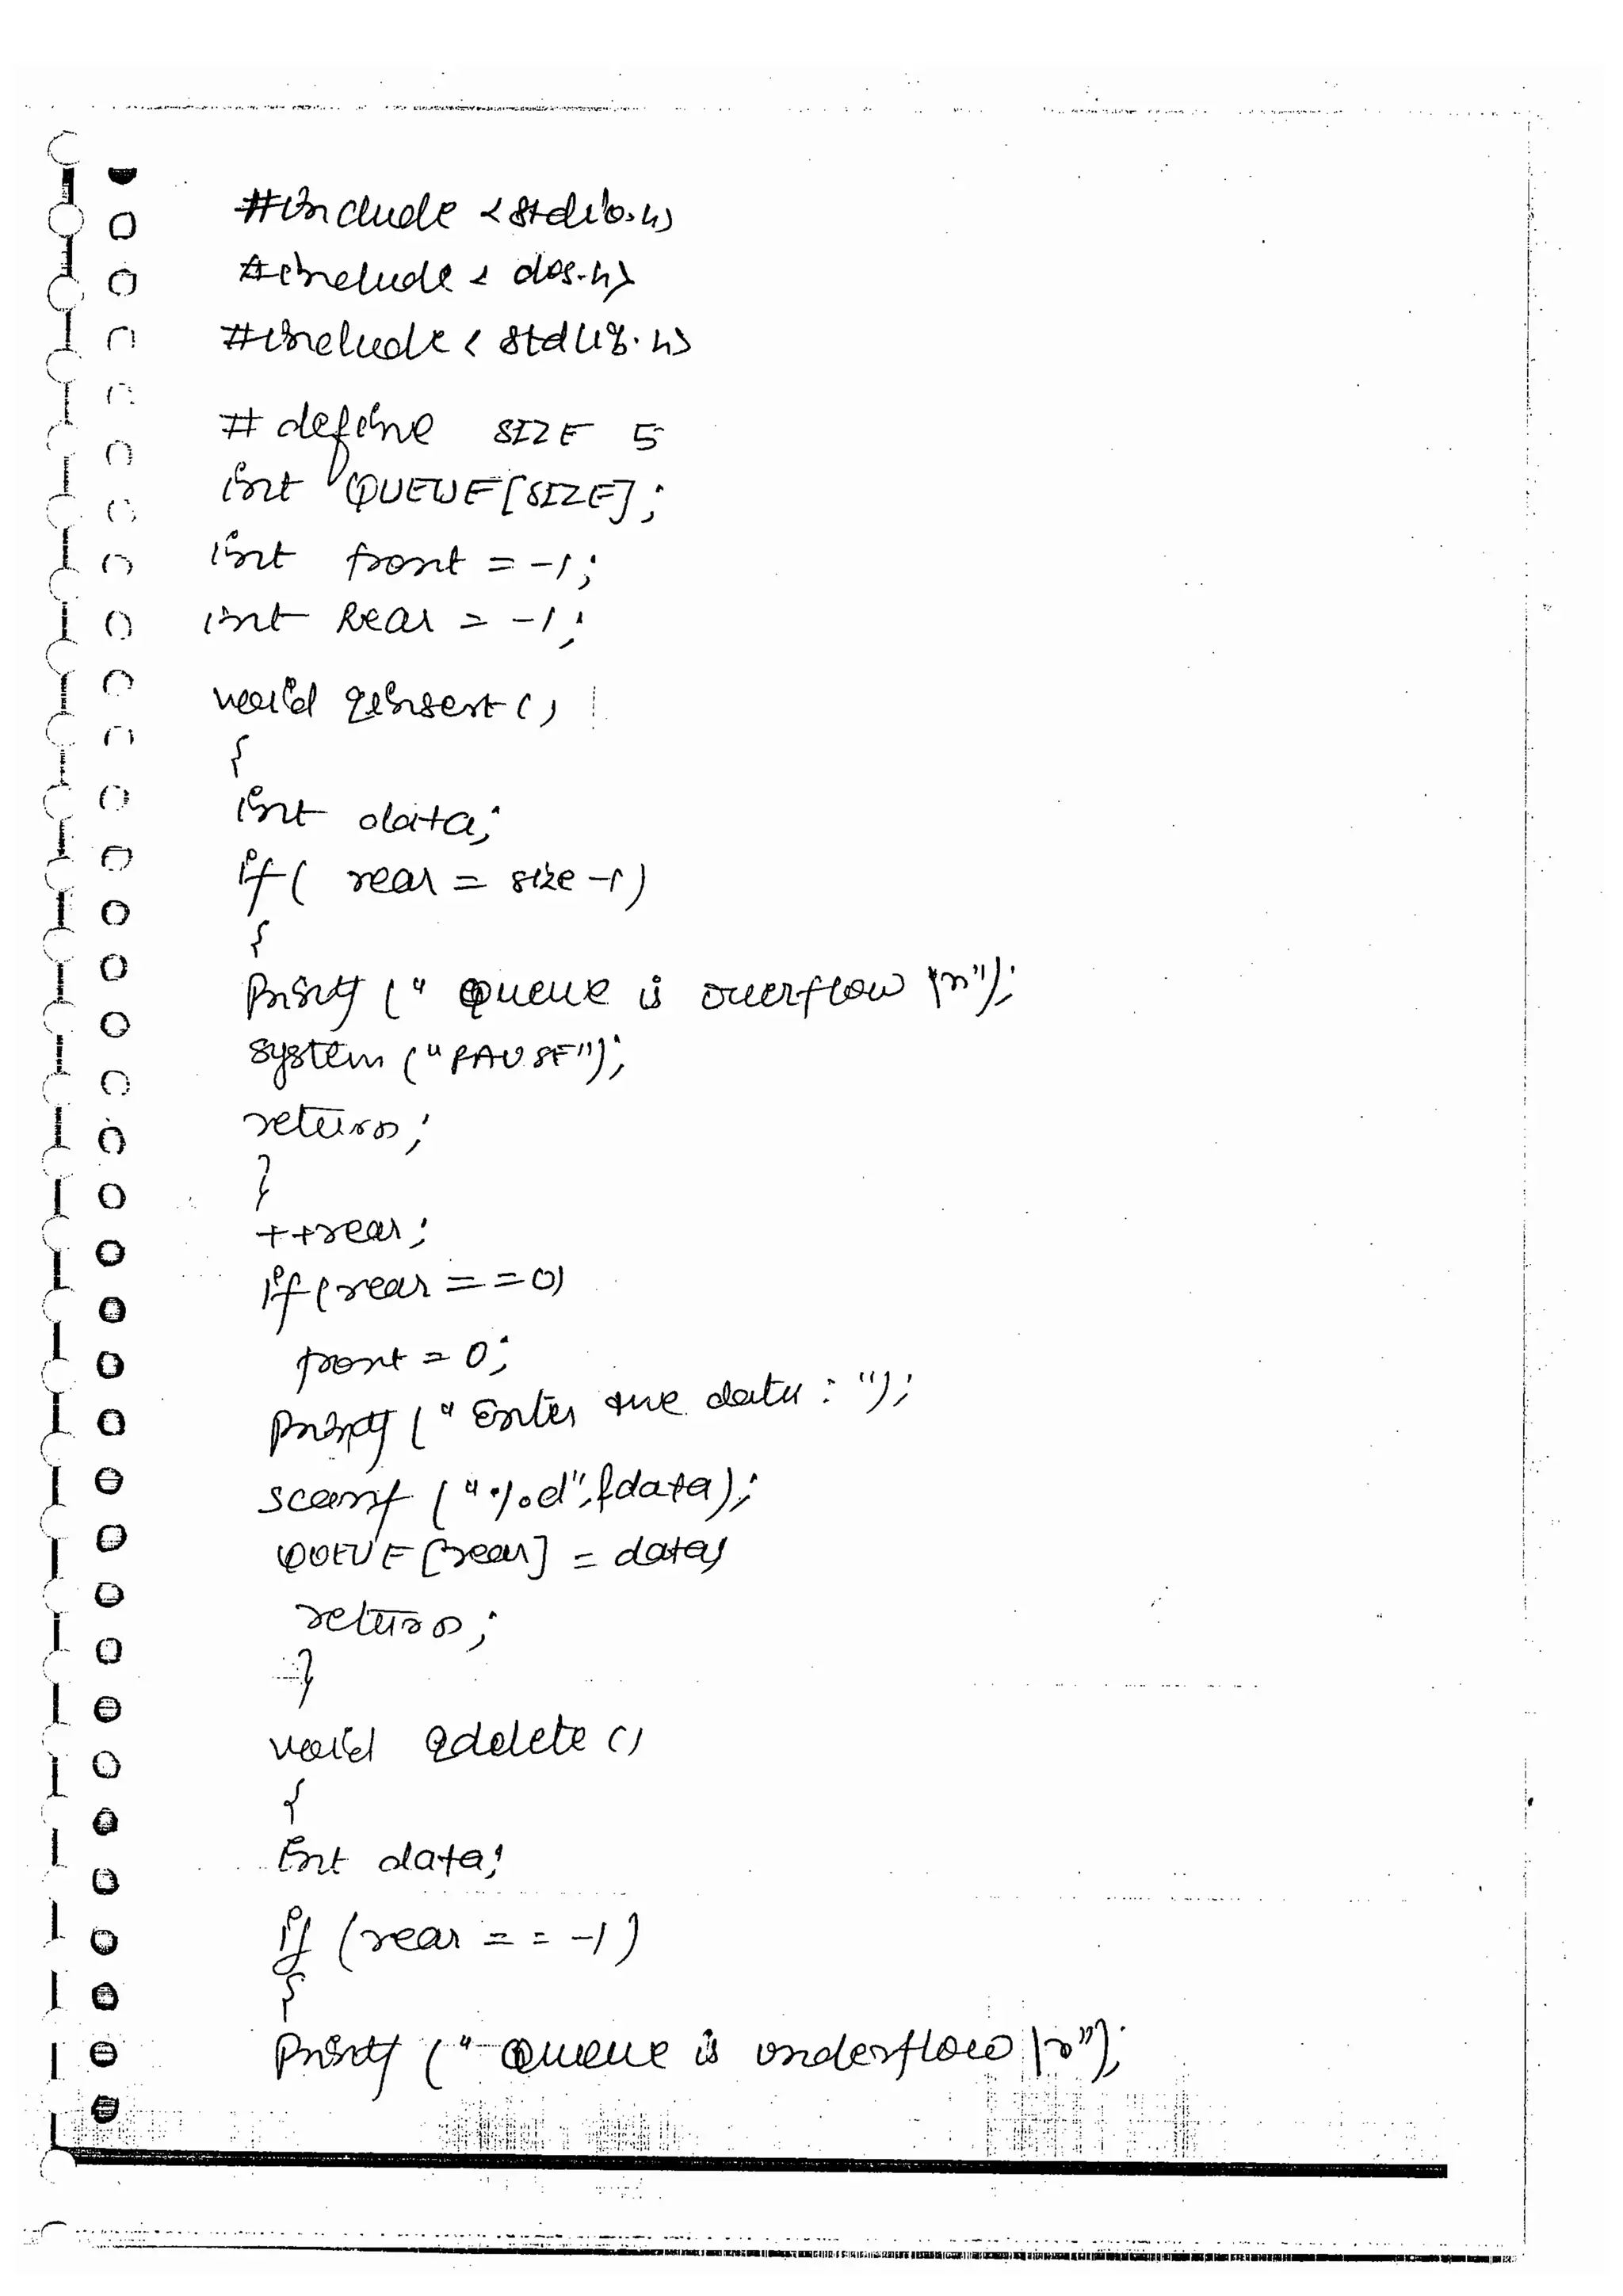 #include <stdio.h>
#include < dos.h>
#include < stdlib.h>
# define SIZE 5
int QUEUE[SIZE];
int front = -1;
int Rear = -1;
void qinsert()
{
int data;
if( rear = size -1)
{
printf (" Queue is overflow \n");
system ("PAUSE");
return;
}
++rear;
if(rear ==0)
front = 0;
printf (" Enter the data : ");
scanf ("%d",&data);
QUEUE [rear] = data;
return;
}
void qdelete ()
{
int data;
if (rear == -1)
{
printf (" Queue is underflow \n");